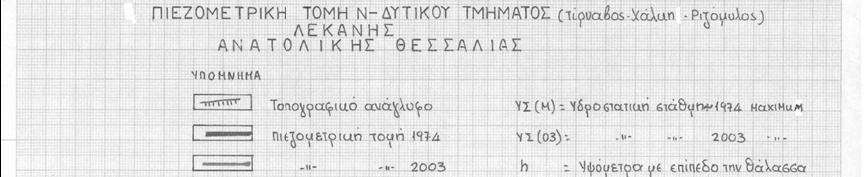 ΠΙΕΖΟΜΕΤΡΙΚΗ ΤΟΜΗ Ν-ΔΥΤΙΚΟΥ ΤΜΗΜΑΤΟΣ (Τίρναβος-Χάλκη-Ριζόμυλος)
ΛΕΚΑΝΗΣ
ΑΝΑΤΟΛΙΚΗΣ ΘΕΣΣΑΛΙΑΣ
ΥΠΟΜΝΗΜΑ
Τοπογραφικό ανάγλυφο ΥΣ(Μ) = Υδροστατική στάθμη 1974 MAXIMUM
Πιεζομετρική τομή 1974 ΥΣ(03) = -"- -"- 2003 -"-
-"- -"- 2003 h = Υψόμετρα με επίπεδο την θάλασσα